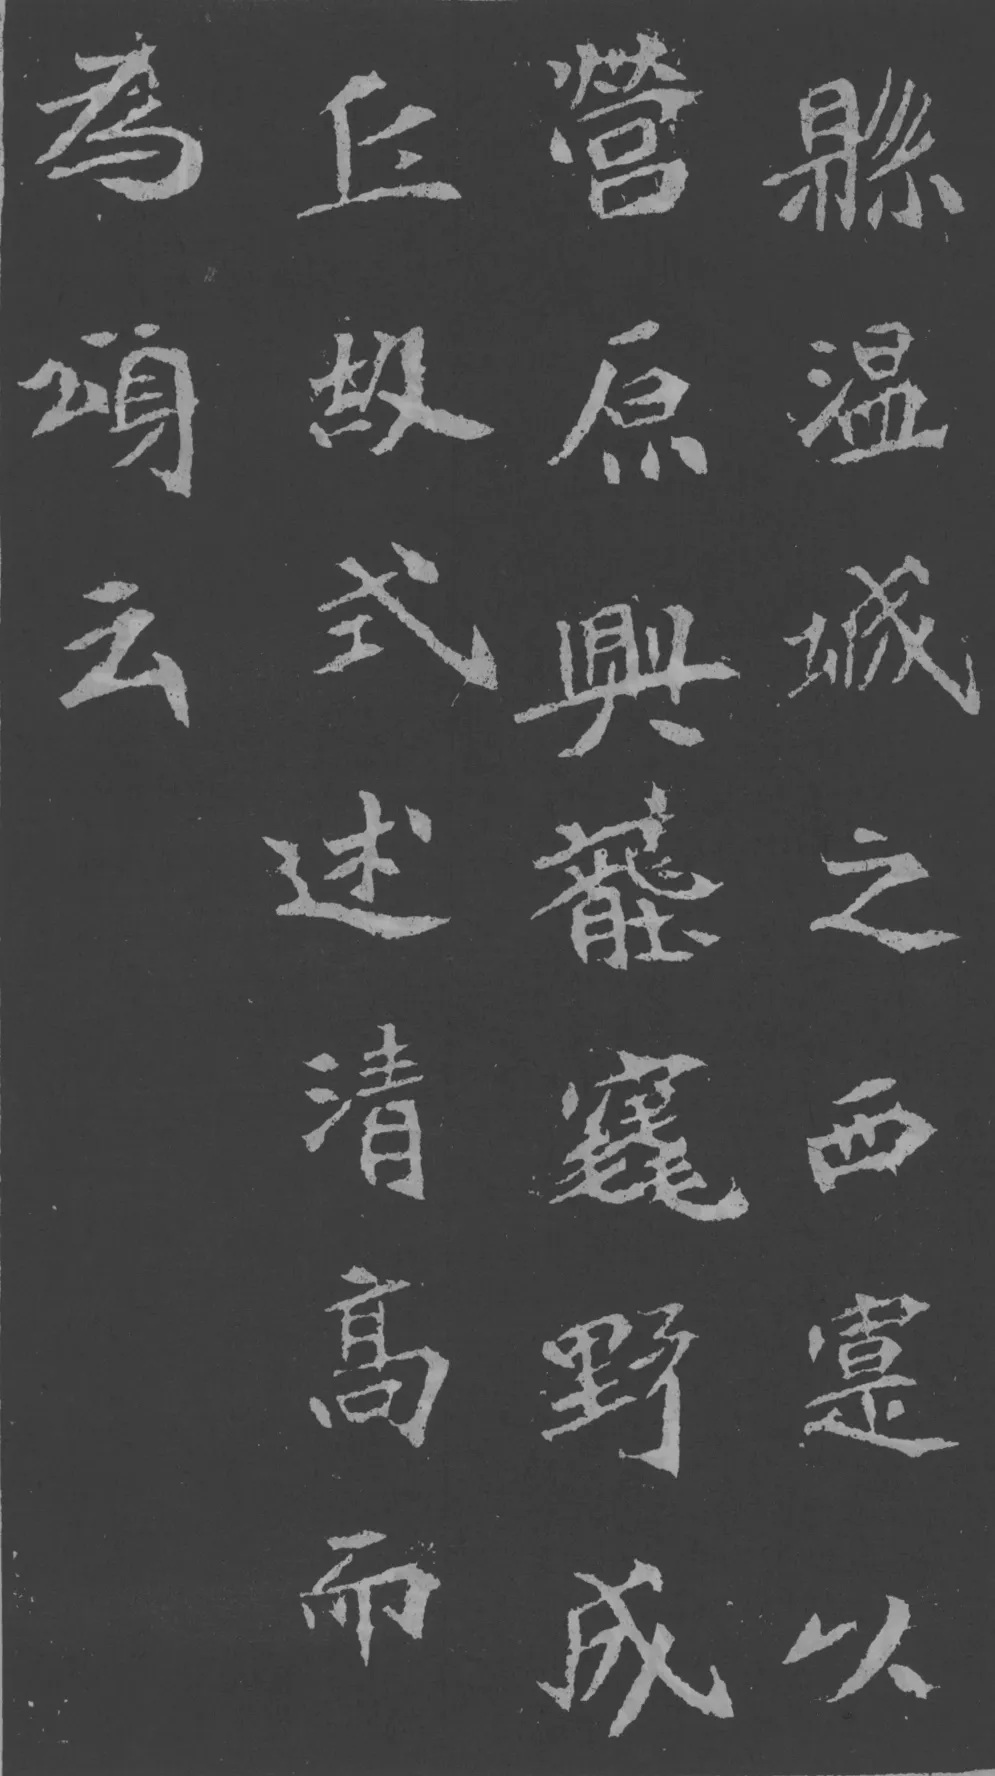 縣溫城之西寔以
營原興壟竁野成
丘故式述清高而
為頌云